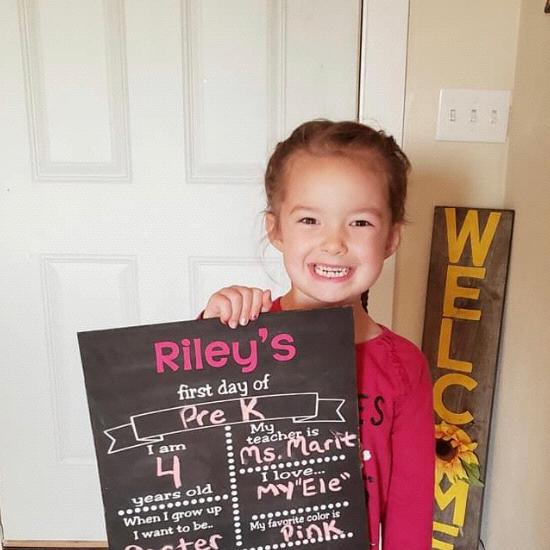 Riley's
first day of
Pre K
I am
4
years old
When I grow up
I want to be..
My
teacher is
Ms. Marit
I love...
My "Ele"
My favorite color is
Pink
WELCOME